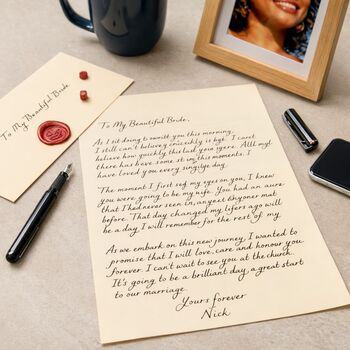 To My Beautiful Bride
To My Beautiful Bride,
As I sit doing to this morning,
I still can't is by. I
believe how quickly this last All
there has been some in this moments, I
have loved you every day.
The moment I first my eyes on you, I knew
you were going to be my wife. You had an aura
that I had never seen in, anyone
before. That day changed my ago will
be a day, I will remember for the rest of my.
As we embark on this new journey, I wanted to
promise that I will love, care and honour you
forever. I can't wait to see you at the church.
It's going to be a brilliant day, a great start
to our marriage.
Yours forever
Nick